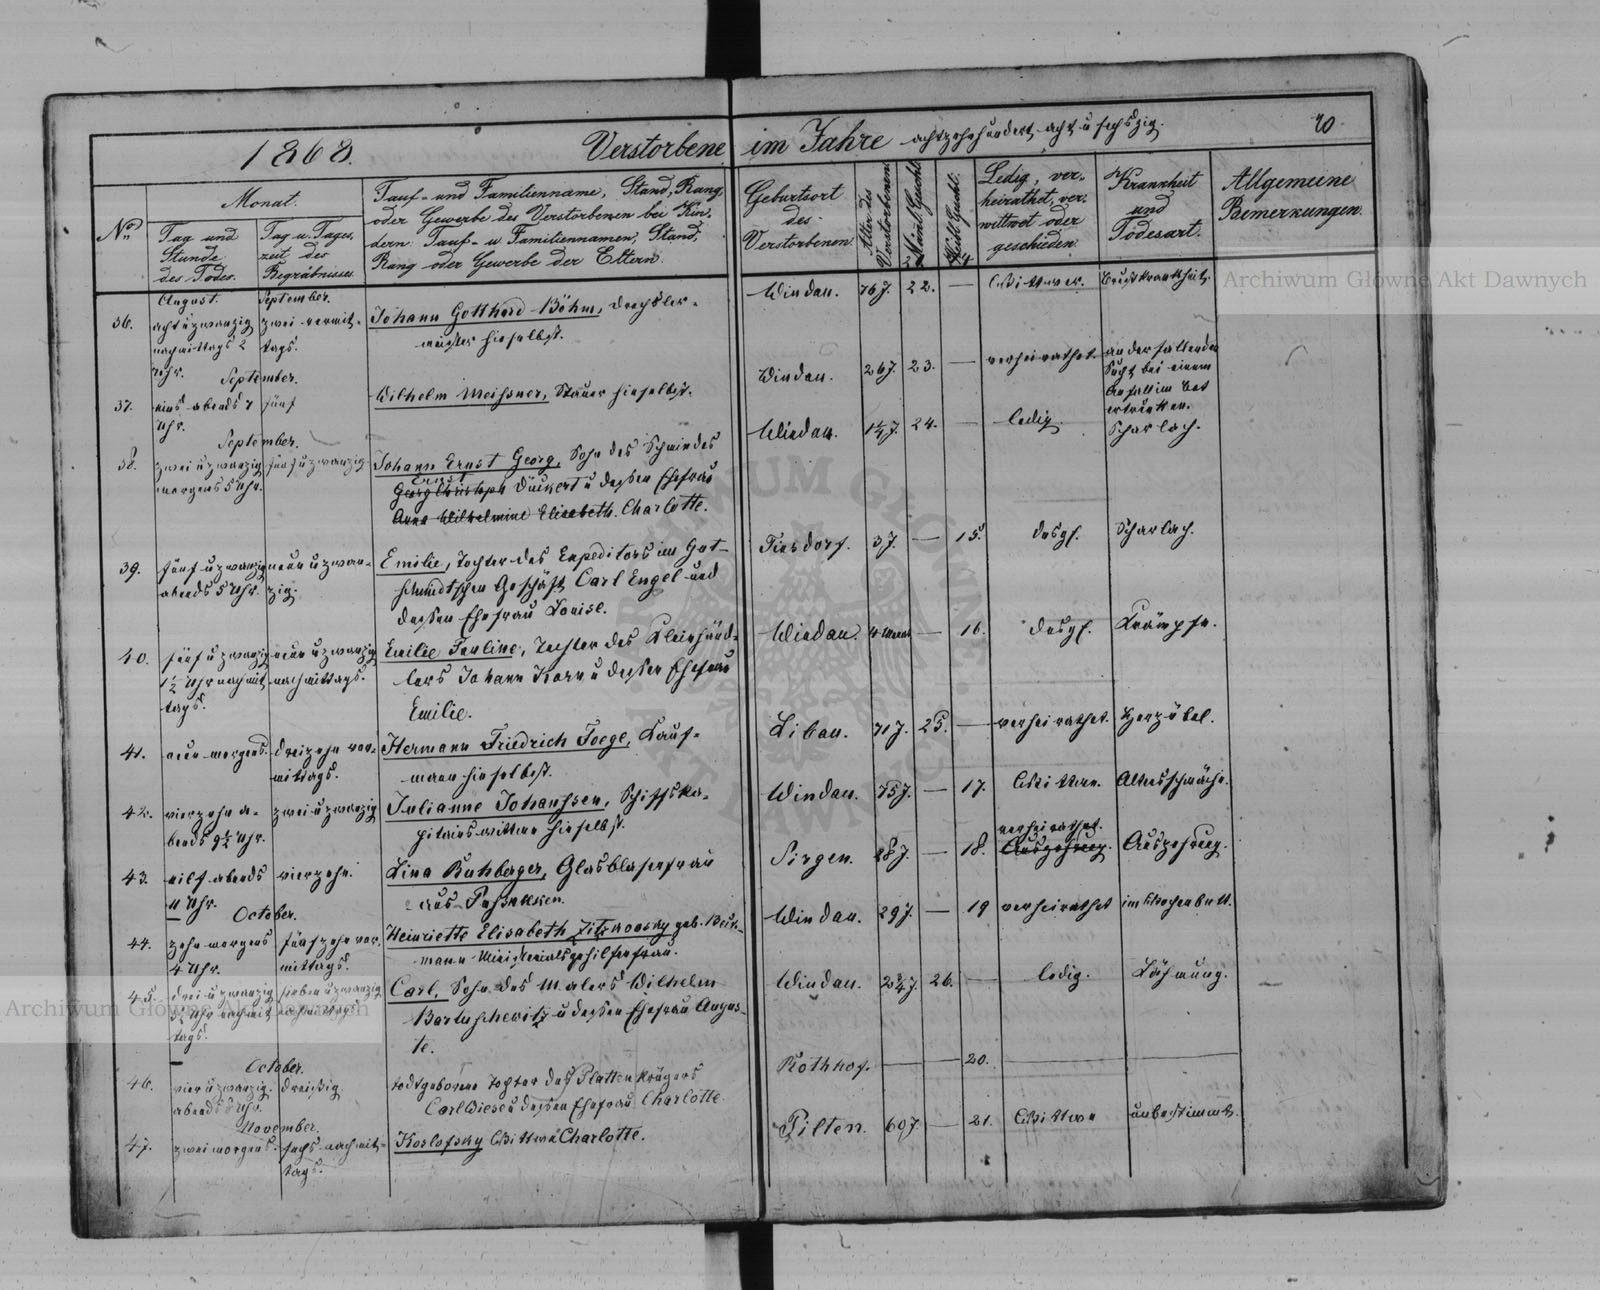 1868. Verstorbene im Jahre achtzehnhundert acht u sechszig.
70
No
Monat.
Tag und
Stunde
des Todes.
Tag u. Tages,
zeit des
Begräbnisses
Tauf- und Familienname, Stand, Rang
oder Gewerbe des Verstorbenen bei Kin-
dern: Tauf- u Familiennamen, Stand,
Rang oder Gewerbe der Eltern.
Geburtsort
des
Verstorbenen.
Alter des
Verstorbenen
Männl. Geschl.
Weibl. Geschl.
Ledig, ver-
heirathet, ver-
wittwet oder
geschieden.
Krankheit
und
Todesart.
Allgemeine
Bemerkungen.
August.
September.
36.
acht u zwanzig
nachmittags 2
Uhr.
zwei vormit-
tags.
Johann Gotthard Böhm, Drechsler-
meister hieselbst.
Windau.
76 J.
22.
Wittwer.
Brustkrankheit.
September.
37.
eins abends 7
Uhr.
fünf
Wilhelm Meissner, Stauer hieselbst.
Windau.
26 J.
23.
verheirathet.
an der fallenden
Sucht bei einem
Anfall im
ertrunken.
September.
38.
zwei u zwanzig
morgens 5 Uhr.
fünf u zwanzig
Johann Ernst Georg, Sohn des Schmiedes
Ernst
Georg Christoph Dückert u dessen Ehefrau
Anna Wilhelmine Elisabeth. Charlotte.
Windau.
24.
ledig.
Scharlach.
39.
fünf u zwanzig
abends 5 Uhr.
neun u zwan-
zig.
Emilie, Tochter des Expeditors im Gut-
schmidtschen Geschäft Carl Engel und
dessen Ehefrau Louise.
3 J.
15.
desgl.
Scharlach.
40.
fünf u zwanzig
1½ Uhr nachmit
tags.
neun u zwanzig
nachmittags.
Emilie Pauline, Tochter des Kleinhänd-
lers Johann Korn u dessen Ehefrau
Emilie.
Windau.
16.
desgl.
Krämpfe.
41.
neun morgens.
dreizehn vor-
mittags.
Hermann Friedrich Foege, Kauf-
mann hieselbst.
Libau.
71 J.
25.
verheirathet.
Herzübel.
42.
vierzehn a-
bends 9½ Uhr.
zwei u zwanzig
Julianne Johanssen, Schiffska-
pitains wittwe hieselbst.
Windau.
75 J.
17.
Wittwe.
Altersschwäche.
43.
eilf abends
11 Uhr.
vierzehn.
Lina Buhberger, Glasblaserfrau
aus
Sirgen.
28 J.
18.
verheirathet.
Auszehrung.
Auszehrung.
October.
44.
zehn morgens
4 Uhr.
fünfzehn vor
mittags.
Heinriette Elisabeth Zitzkovsky geb. Beck-
mann Ministerialsgehilfenfrau.
Windau.
29 J.
19
verheirathet
im Wochenbett.
45.
drei u zwanzig
3½ Uhr nachmit
tags.
sieben u zwanzig
nachmittags
Carl, Sohn des Malers Wilhelm
Bartuschewitz u dessen Ehefrau Augus-
te.
Windau.
2¾ J.
26.
ledig.
Lähmung.
October.
46.
vier u zwanzig.
abends 8 Uhr.
dreißig
todtgeborene Tochter des Platten krügers
Carl Diese u dessen Ehefrau Charlotte.
Rothhof.
20.
November.
47.
zwei morgens.
sechs nachmit-
tags.
Koslofsky Wittwe Charlotte.
Pilten.
60 J.
21.
Wittwe
unbestimmt.
Archiwum Główne Akt Dawnych
Archiwum Główne Akt Dawnych
ARCHIWUM GŁÓWNE AKT DAWNYCH